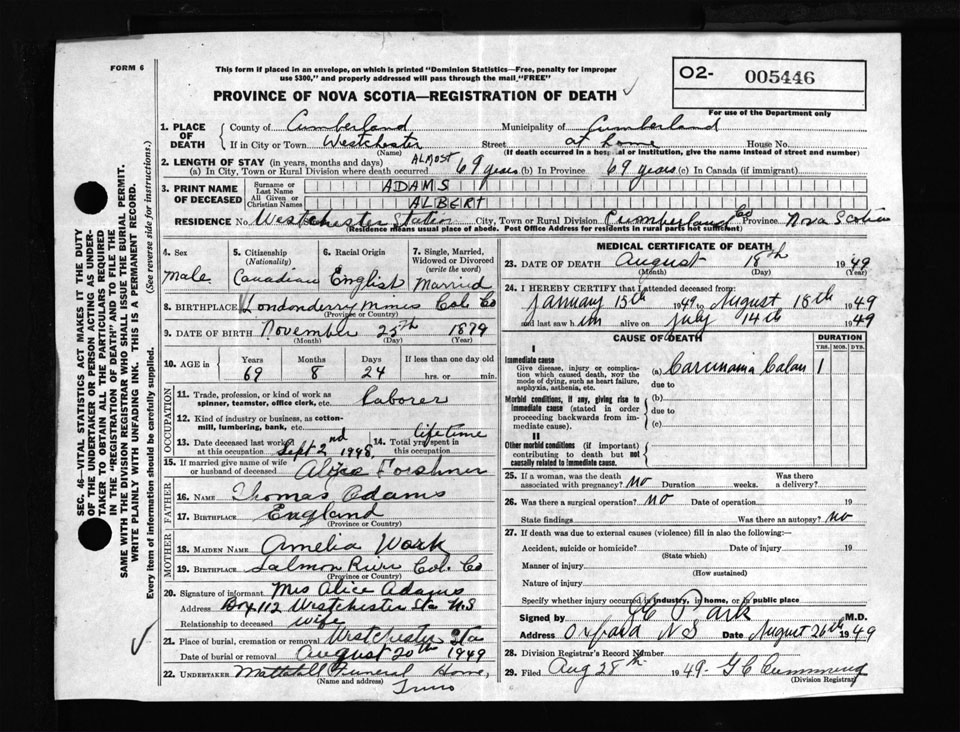 FORM 6
This form if placed in an envelope, on which is printed "Dominion Statistics—Free, penalty for improper
use $300," and properly addressed will pass through the mail "FREE"
PROVINCE OF NOVA SCOTIA—REGISTRATION OF DEATH
O2- 005446
For use of the Department only
SEC. 46—VITAL STATISTICS ACT MAKES IT THE DUTY
OF THE UNDERTAKER OR PERSON ACTING AS UNDER-
TAKER TO OBTAIN ALL THE PARTICULARS REQUIRED
IN THE "REGISTRATION OF DEATH" AND TO FILE THE
SAME WITH THE DIVISION REGISTRAR WHO SHALL ISSUE THE BURIAL PERMIT.
WRITE PLAINLY WITH UNFADING INK. THIS IS A PERMANENT RECORD.
Every item of information should be carefully supplied. (See reverse side for instructions.)
1. PLACE OF DEATH
County of Cumberland Municipality of Cumberland
If in City or Town Westchester Street at home House No.
(Name) (If death occurred in a hospital or institution, give the name instead of street and number)
2. LENGTH OF STAY (in years, months and days)
(a) In City, Town or Rural Division where death occurred ALMOST 69 years (b) In Province 69 years (c) In Canada (if immigrant)
3. PRINT NAME OF DECEASED
Surname or Last Name ADAMS
All Given or Christian Names ALBERT
RESIDENCE No. Westchester Station City, Town or Rural Division Cumberland Co Province Nova Scotia
(Residence means usual place of abode. Post Office Address for residents in rural parts not sufficient)
4. Sex 5. Citizenship (Nationality) 6. Racial Origin 7. Single, Married, Widowed or Divorced (write the word)
Male Canadian English Married
8. BIRTHPLACE Londonderry Mines Col. Co
(Province or Country)
9. DATE OF BIRTH November 25th 1879
(Month) (Day) (Year)
10. AGE IN Years Months Days If less than one day old
69 8 24 hrs. or min.
OCCUPATION
11. Trade, profession, or kind of work as spinner, teamster, office clerk, etc. Laborer
12. Kind of industry or business, as cotton-mill, lumbering, bank, etc.
13. Date deceased last worked at this occupation Sept 2nd 1948 14. Total yrs. spent in this occupation lifetime
15. If married give name of wife or husband of deceased Forshner
FATHER
16. NAME Thomas Adams
17. BIRTHPLACE England
(Province or Country)
MOTHER
18. MAIDEN NAME Amelia Work
19. BIRTHPLACE Salmon River Col. Co
(Province or Country)
20. Signature of informant Mrs Alice Adams
Address Box 112 Westchester Sta N.S
Relationship to deceased wife
21. Place of burial, cremation or removal Westchester Sta
Date of burial or removal August 20th 1949
22. UNDERTAKER Mattatall Funeral Home,
(Name and address) Truro
MEDICAL CERTIFICATE OF DEATH
23. DATE OF DEATH August 18th 1949
(Month) (Day) (Year)
24. I HEREBY CERTIFY that I attended deceased from:
January 15th 1949 to August 18th 1949
and last saw him alive on July 14th 1949
CAUSE OF DEATH DURATION
YRS. MOS. DYS.
I
Immediate cause
Give disease, injury or complication which caused death, NOT the mode of dying, such as heart failure, asphyxia, asthenia, etc.
(a) Carcinoma Colon 1
due to
Morbid conditions, if any, giving rise to immediate cause (stated in order proceeding backwards from immediate cause).
(b)
due to
(c)
II
Other morbid conditions (if important) contributing to death but not causally related to immediate cause.
25. If a woman, was the death associated with pregnancy? No Duration weeks. Was there a delivery?
26. Was there a surgical operation? No Date of operation 19
State findings Was there an autopsy? No
27. If death was due to external causes (violence) fill in also the following:
Accident, suicide or homicide? Date of injury 19
(State which)
Manner of injury
(How sustained)
Nature of injury
Specify whether injury occurred in industry, in home, or in public place
Signed by Park M.D.
Address Oxford N S Date August 26th 1949
28. Division Registrar's Record Number
29. Filed Aug 28th 1949 G C Cumming
(Division Registrar)